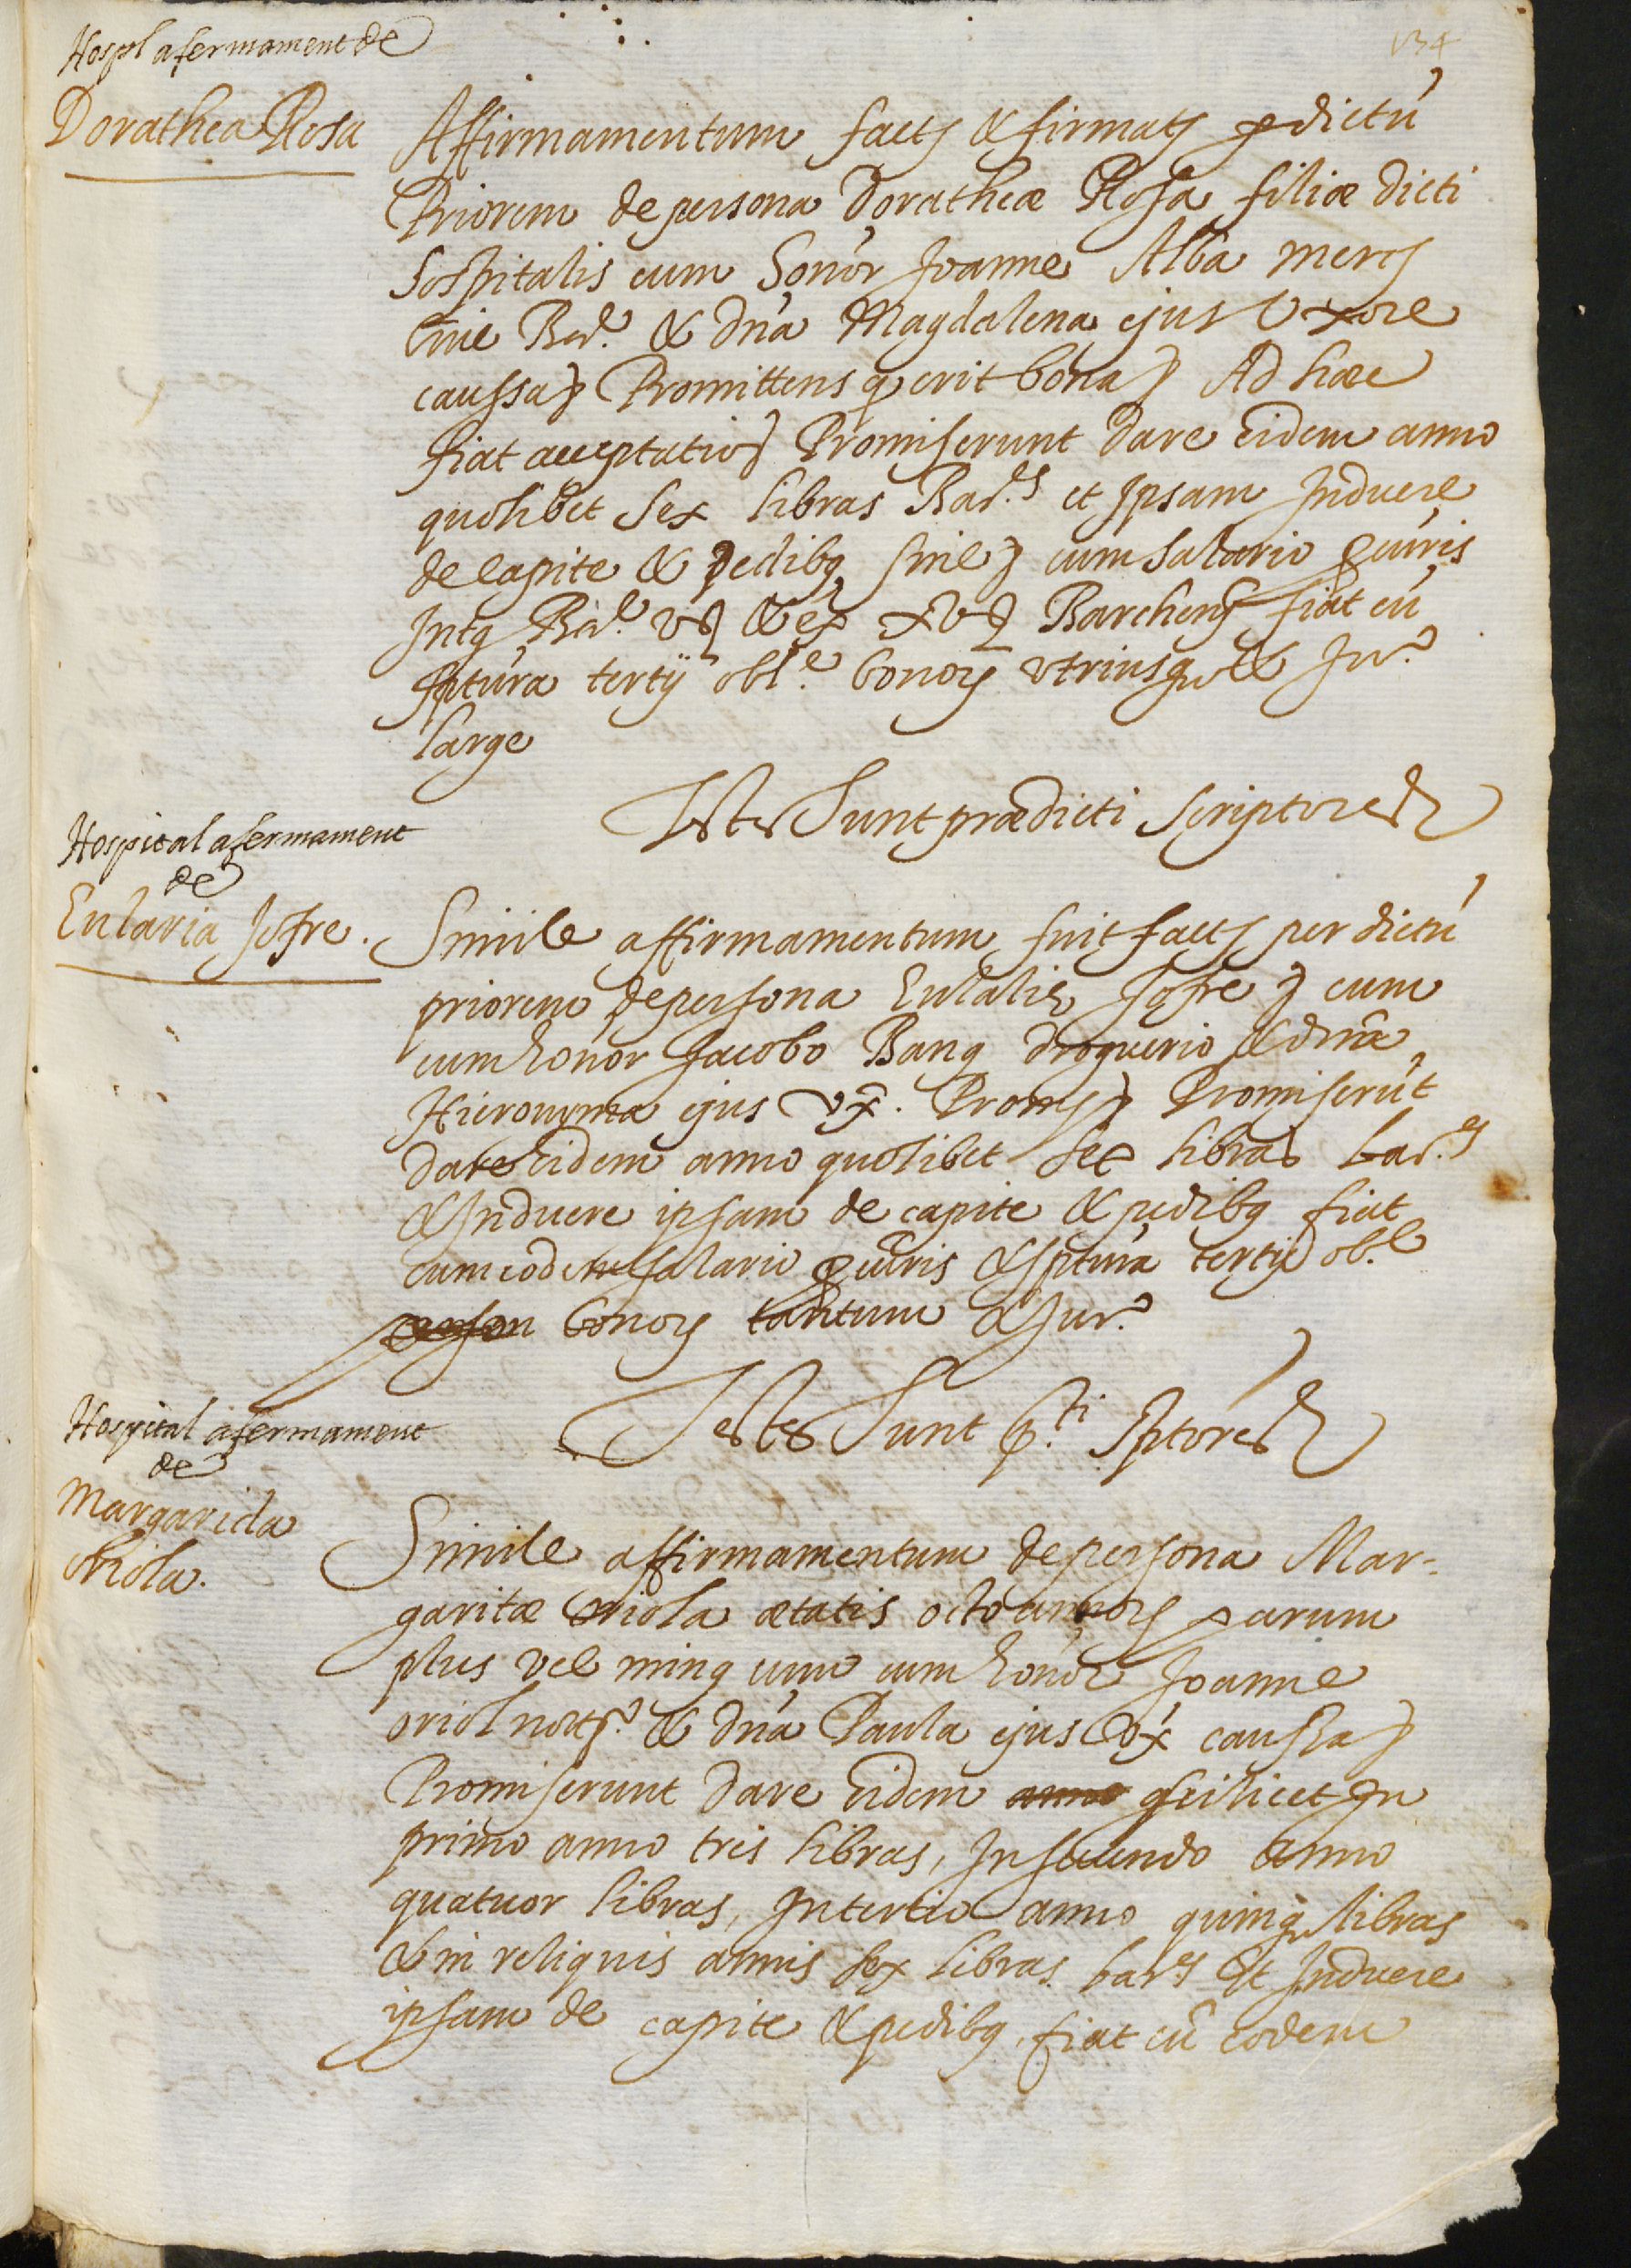 134
Hospl afermament de
Dorathea Rosa
Affirmamentum fact9 & firmat9 p dictú
Priorem de persona Dorotheæ Rosa filiæ dicti
hospitalis cum honor Joanne Alba merc9
cive Bar.e & dna Magdalena ejus Uxore
caussa Promittens q erit bona Ad hæc
fiat acceptatio Promiserunt dare Eidem anno
quolibet sex libras Bar.s et Ipsam Induere
de capite & pedib9 sine cum salario
Bar.e & ex Barchcns fiat cú
sptura tertij obl.e bonor utriusq & Jur.
large
Testes Sunt prædicti scriptores
Hospital afermament
de
Eularia Jofre.
Simile affirmamentum fuit fact9 per dictú
priorem de persona Eulaliæ Jofre cum
cum honor Jacobo Banq droguerio & dna
Hieronyma ejus vx. Proms Promiserút
dare Eidem anno quolibet sex libras bar.s
& Induere ipsam de capite & pedib9 fiat
cum eodem salario & sptura tertij obl.e
bonor tantum & Jur.
Testes Sunt p.ti sptores
Hospital afermament
de
Margarida
oriola.
Simile affirmamentum de persona Mar-
garitæ Oriola ætatis octo annor parum
plus vel min9 cum honor Joanne
oriol not. & dna Paula ejus vx caussa
Promiserunt dare Eidem anno scilicet In
primo anno tris libras, In secundo anno
quatuor libras, In tertio anno quinq libras
& in reliquis annis sex libras bar.s Et Induere
ipsam de capite & pedib9, fiat cú eodem